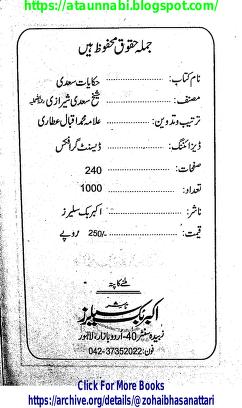 https://ataunnabi.blogspot.com/
جملہ حقوق محفوظ ہیں
نام کتاب: حکایات سعدی
مصنف: شیخ سعدی شیرازی
ترتیب و تدوین: علامہ محمد اقبال عطاری
ڈیزائننگ: ڈیسنٹ گرافکس
صفحات: 240
تعداد: 1000
ناشر: اکبر بک سیلرز
قیمت: 250/- روپے
ملنے کا پتہ
اکبر بک سیلرز
زبیدہ سنٹر 40- اردو بازار، لاہور
فون: 042-37352022
Click For More Books
https://archive.org/details/@zohaibhasanattari